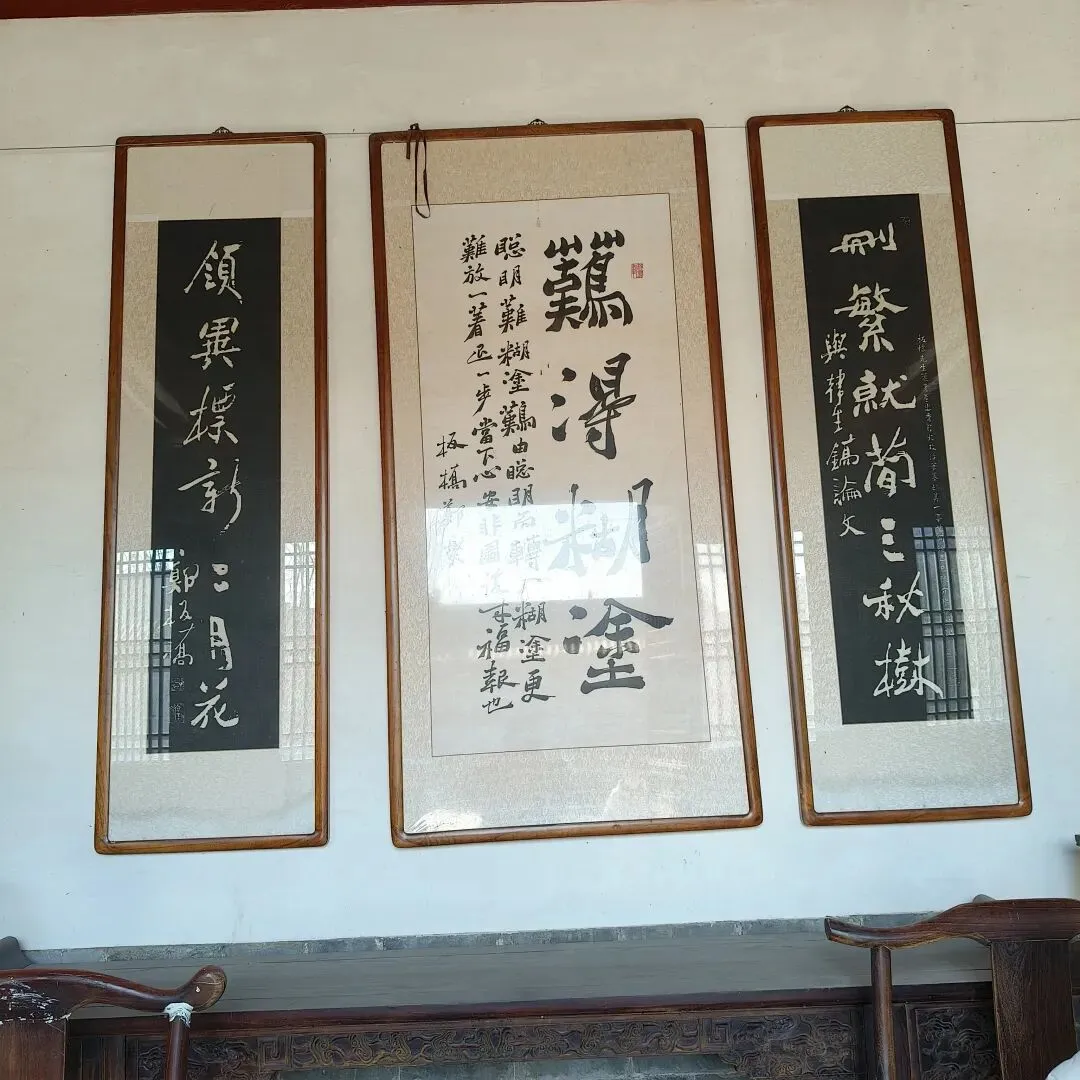 刪繁就簡三秋樹
與韓生鎬論文
難得糊塗
聰明難糊塗難由聰明而轉入糊塗更
難放一著退一步當下心安非圖後來福報也
板橋鄭燮
領異標新二月花
鄭板橋